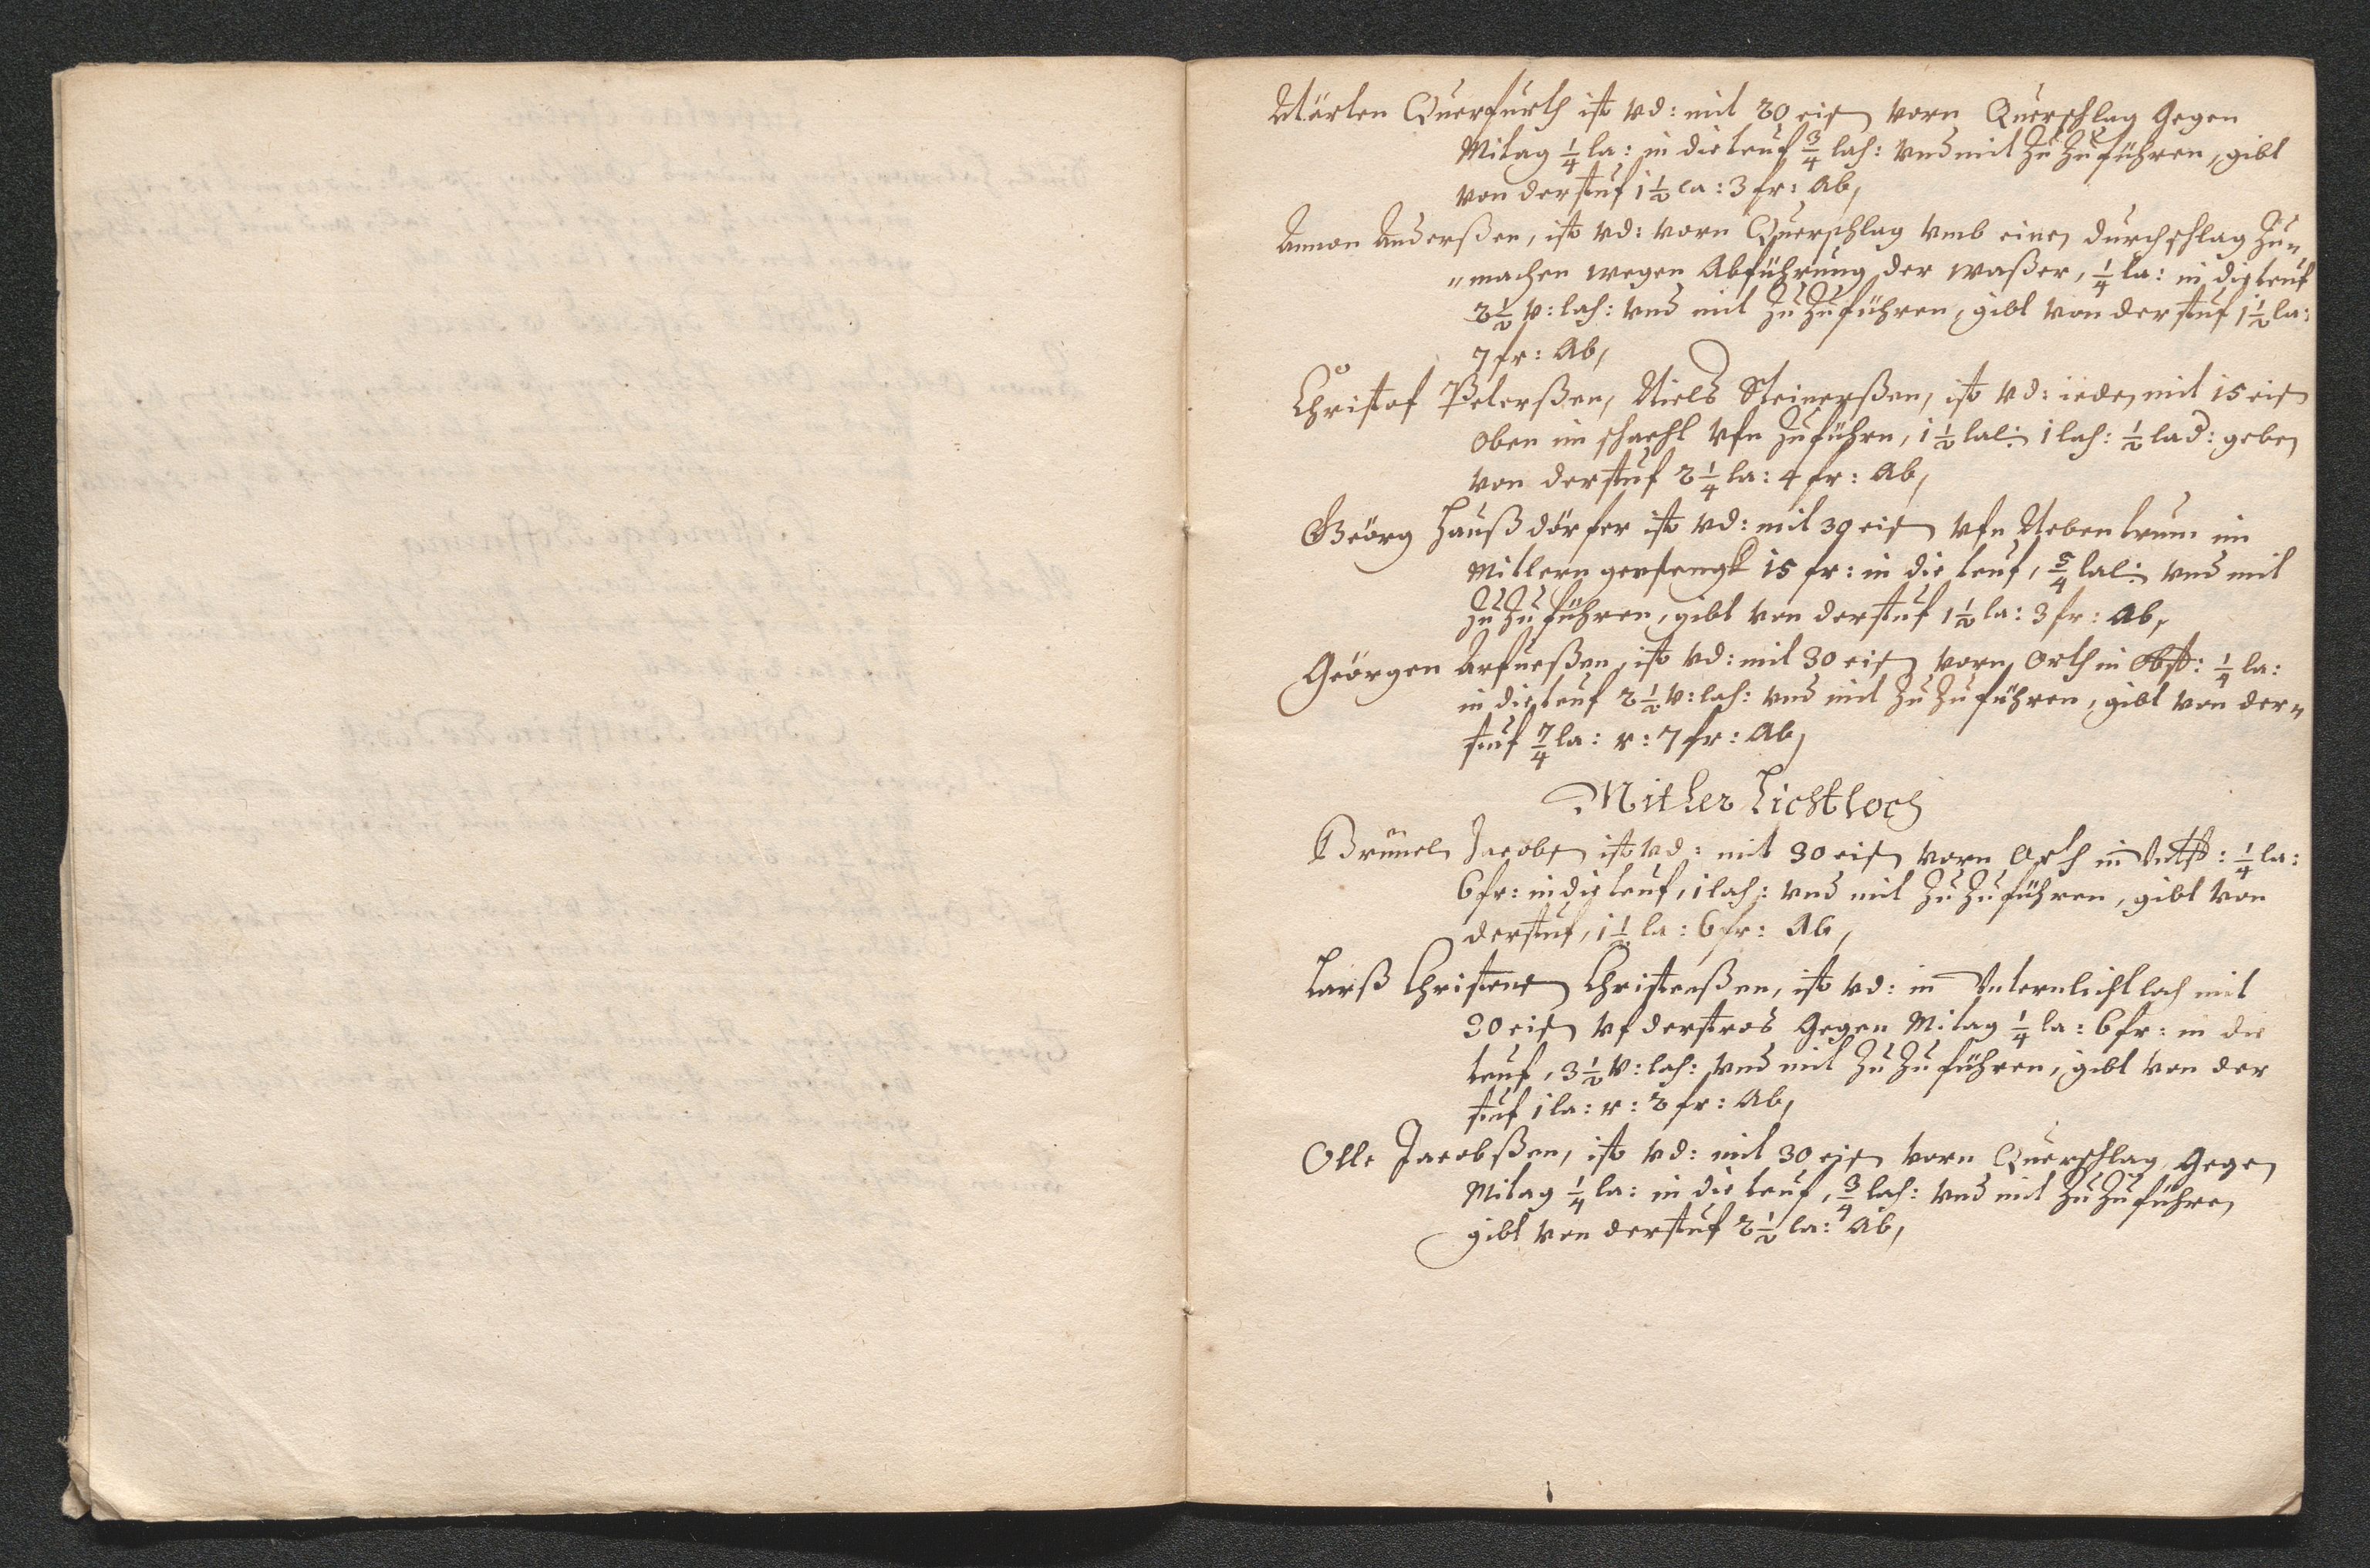 Märten Querfurth ist vd: mit 20 eisn vorn Querschlag Gegen
Mitag 1/4 la: in die teuf 3/4 lach: vnd mit Zu Zu führen, gibt
von der stuf 1 1/2 la: 3 fr: Ab,
Amon Anderßen, ist vd: vorn Querschlag vmb einen durchschlag Zu„
„machen wegen Abführung der waßer, 1/4 la: in die teuf
2 1/2 v: lach: vnd mit Zu Zu führen, gibt von der stuf 1 1/2 la:
7 fr: Ab,
Christof Peterßen, Niels Steinerßen, ist vd: ieder mit 15 eisn
oben im schacht vfn Zu führn, 1 1/2 lal: 1 lach: 1/2 lad: geben
von der stuf 2 1/4 la: 4 fr: Ab,
Geörg Haußdörfer ist vd: mit 30 eisn vfn Neben trum im
Mittern gesengk 15 fr: in die teuf, 5/4 lal: vnd mit
Zu Zu führen, gibt von der stuf 1 1/2 la: 3 fr: Ab,
Geörgen Arfueßen, ist vd: mit 30 eisn vorn Orth in Obst: 1/4 la:
in die teuf 2 1/2 v: lach: vnd mit Zu Zu führen, gibt von der„
stuf 7/4 la: r: 7 fr: Ab,
Mitler Lichtloch
Brünel Jacobsn ist vd: mit 30 eisn vorn Orth in Untst: 1/4 la:
6 fr: in die teuf, 1 lach: vnd mit Zu Zu führen, gibt von
der stuf, 1 1/2 la: 6 fr: Ab,
Larß Christens Christenßen, ist vd: in Untern lichtloch mit
30 eisn vf der stros Gegen Mitag 1/4 la: 6 fr: in die
teuf, 3 1/2 v: lach: vnd mit Zu Zu führen, gibt von der
stuf 1 la: r: 2 fr: Ab,
Olle Jacobßen, ist vd: mit 30 eisn vorn Querschlag Gegen
Mitag 1/4 la: in die teuf, 3/4 lach: vnd mit Zu Zu führen
gibt von der stuf 2 1/2 la: Ab,